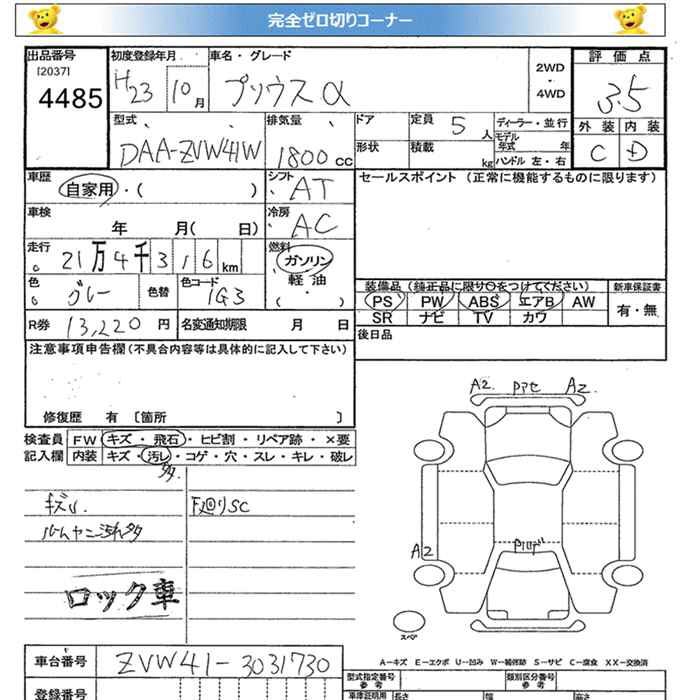 完全ゼロ切りコーナー
出品番号 初度登録年月 車名・グレード 2WD・4WD 評価点
[2037]
4485 H23 10月 プリウスα 3.5
型式 排気量 ドア 定員 5人 ディーラー・並行 外装 内装
DAA-ZVW41W 1800cc 形状 積載 kg モデル年式 年 C D
ハンドル 左・右
車歴 自家用・( ) シフト AT セールスポイント(正常に機能するものに限ります)
車検 年 月( 日) 冷房 AC
走行 21万4千316km 燃料 ガソリン
軽油
( ・ )
色 グレー 色替 色コード 1G3 装備品(純正品に限り○をつけてください) 新車保証書
PS PW ABS エアB AW 有・無
R券 13,220円 名変通知期限 月 日 SR ナビ TV カワ
注意事項申告欄(不具合内容等は具体的に記入して下さい) 後日品
修復歴 有 〔箇所 〕
検査員記入欄 FW キズ・飛石・ヒビ割・リペア跡・×要
内装 キズ・汚レ・コゲ・穴・スレ・キレ・破レ
多
キズU. F廻りSC
ルームヤニ汚れ多
ロック車
A2 Pアセ A2
A2
スペア
A―キズ E―エクボ U―凹み W―補修跡 S―サビ C―腐食 XX―交換済
車台番号 ZVW41-3031730
登録番号
型式指定番号 参考 類別区分番号 参考
車庫証明用 長さ 幅 高さ